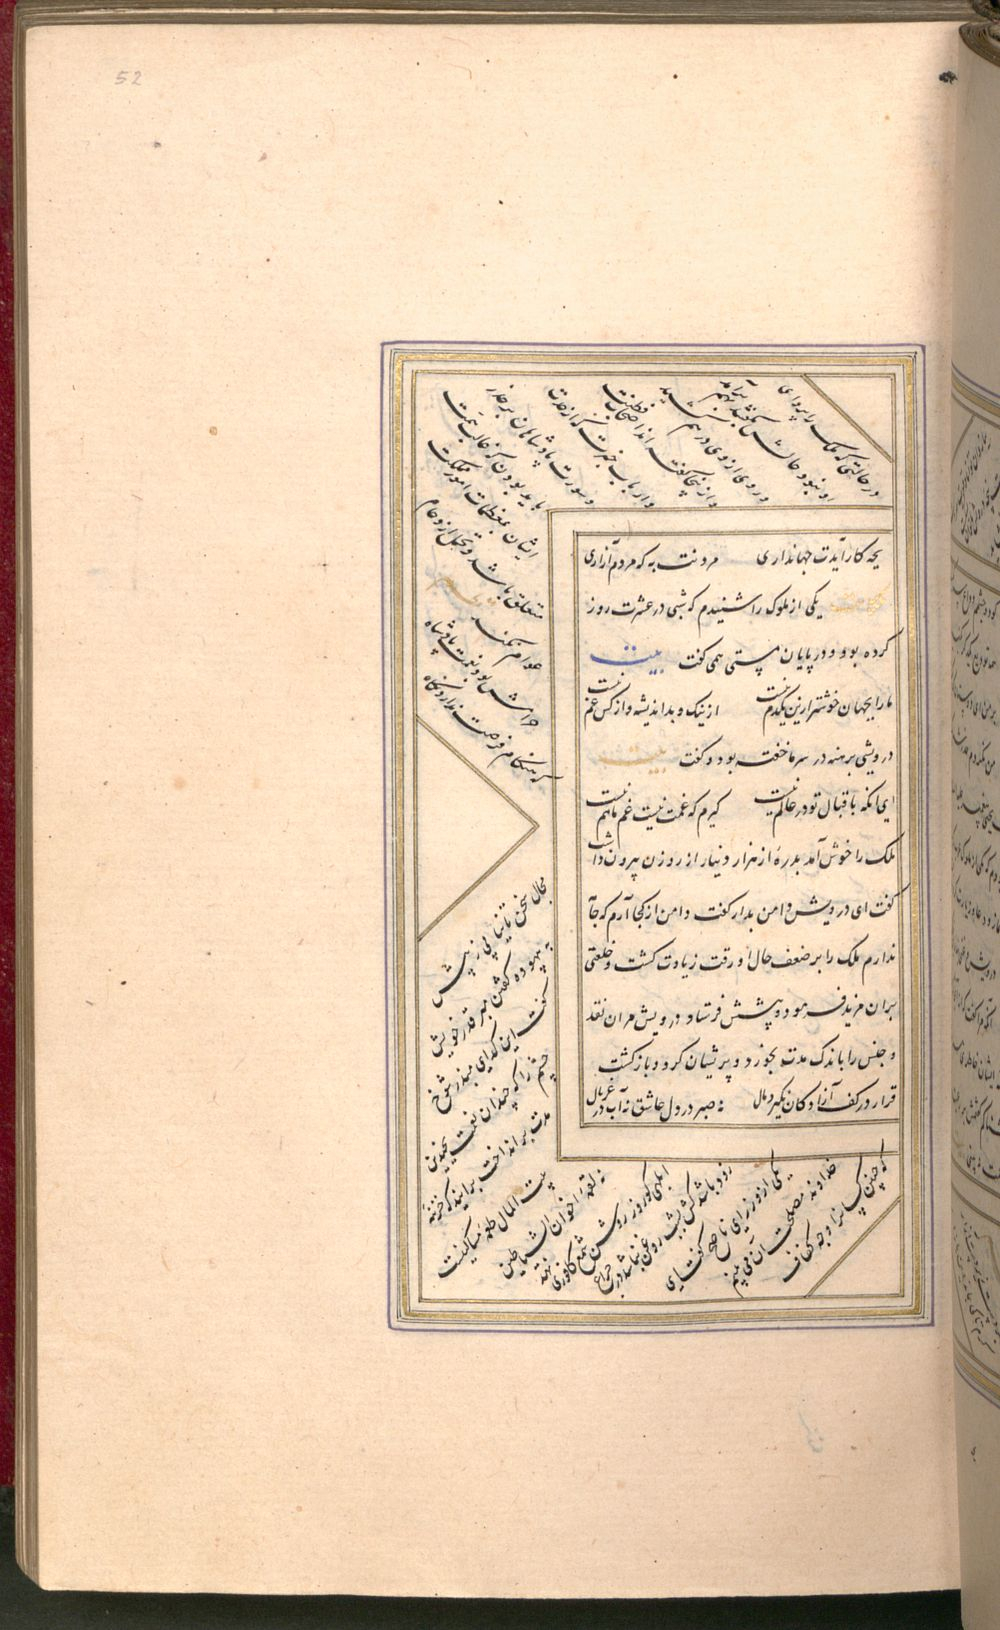 52
بچه کار آیدت جهانداری مردنت به که مردم آزاری
حکایت یکی از ملوک را شنیدم که شبی در عشرت روز
کرده بود و در پایان مستی همی گفت بیت
ما را بجهان خوشتر ازین یکدم نیست از نیک و بد اندیشه و از کس غم نیست
درویشی برهنه در سرما خفته بود و گفت بیت
ای انکه باقبال تو در عالم نیست گیرم که غمت نیست غم ما هم نیست
ملک را خوش آمد بدرهٔ از هزار دینار از روزن بیرون داشت
گفت ای درویش دامن بدار گفت دامن از کجا آرم که جا
ندارم ملک را بر ضعف حال او رقت زیادت گشت و خلعتی
بران مزید فرمود و پیشش فرستاد درویش مر ان نقد
و جنس را باندک مدت بخورد و پریشان کرد و باز گشت
قرار در کف آزادگان نگیرد مال نه صبر در دل عاشق نه آب در غربال
در حالتی که ملک را پروای
او نبود حالش بگفتند بهم برآمد
و روی از وی در هم کشید
و از ینجا گفته اند اصحاب فطنت
و ارباب خبرت که از حدت
و سورت پادشاهان بر حذر
باید بودن که غالب همت
ایشان بمعظمات امور مملکت
متعلق باشد و تحمل ازدحام
عوام نکند
حرامش بود نعمت پادشاه
که هنگام فرصت ندارد نگاه
مجال سخن تا نیابی ز پیش
به بیهوده گفتن مبر قدر خویش
گفت این گدای مبذر شوخ
چشم را که چندان نعمت بچندین
مدت برانداخت برانید که خزینه
بیت المال طعمه مساکینست
نه لقمه اخوان الشیاطین
ابلهی کو روز روشن شمع کافوری نهد
زود باشد کش بشب روغن نباشد در چراغ
یکی از وزرای ناصح گفت ای
خداوند مصلحت آن می بینم
که چنین کسانرا وجه کفاف